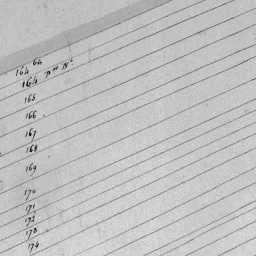 164 64
164
165
166
167
168
169
170
171
172
173
174